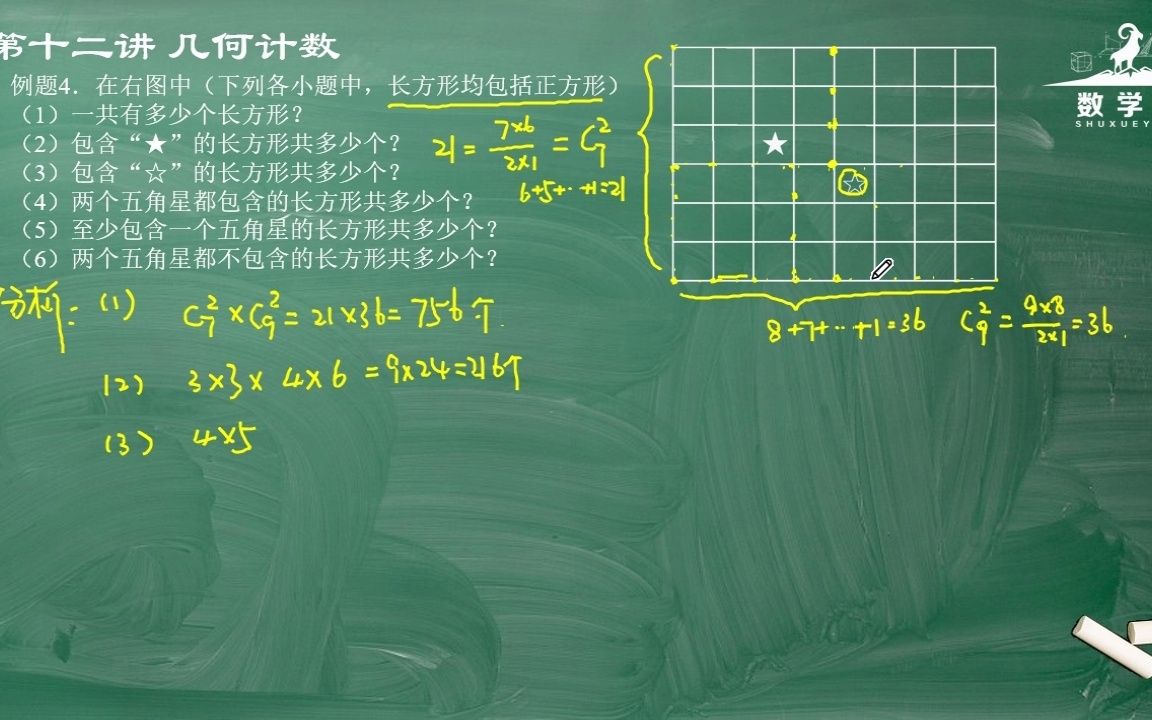 第十二讲 几何计数
例题4．在右图中（下列各小题中，长方形均包括正方形）
（1）一共有多少个长方形？
（2）包含“★”的长方形共多少个？
（3）包含“☆”的长方形共多少个？
（4）两个五角星都包含的长方形共多少个？
（5）至少包含一个五角星的长方形共多少个？
（6）两个五角星都不包含的长方形共多少个？
21 = 7×6/2×1 = C₇²
6+5+‥+1=21
★
☆
8+7+‥+1=36 C₉² = 9×8/2×1 = 36.
分析： (1) C₇²×C₉² = 21×36 = 756个.
(2) 3×3×4×6 = 9×24 = 216个
(3) 4×5
数学
SHUXUEY